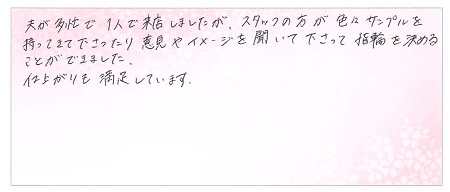 夫が多忙で1人で来店しましたが、スタッフの方が色々サンプルを
持ってきて下さったり意見やイメージを聞いて下さって指輪を決める
ことができました。
仕上がりも満足しています。